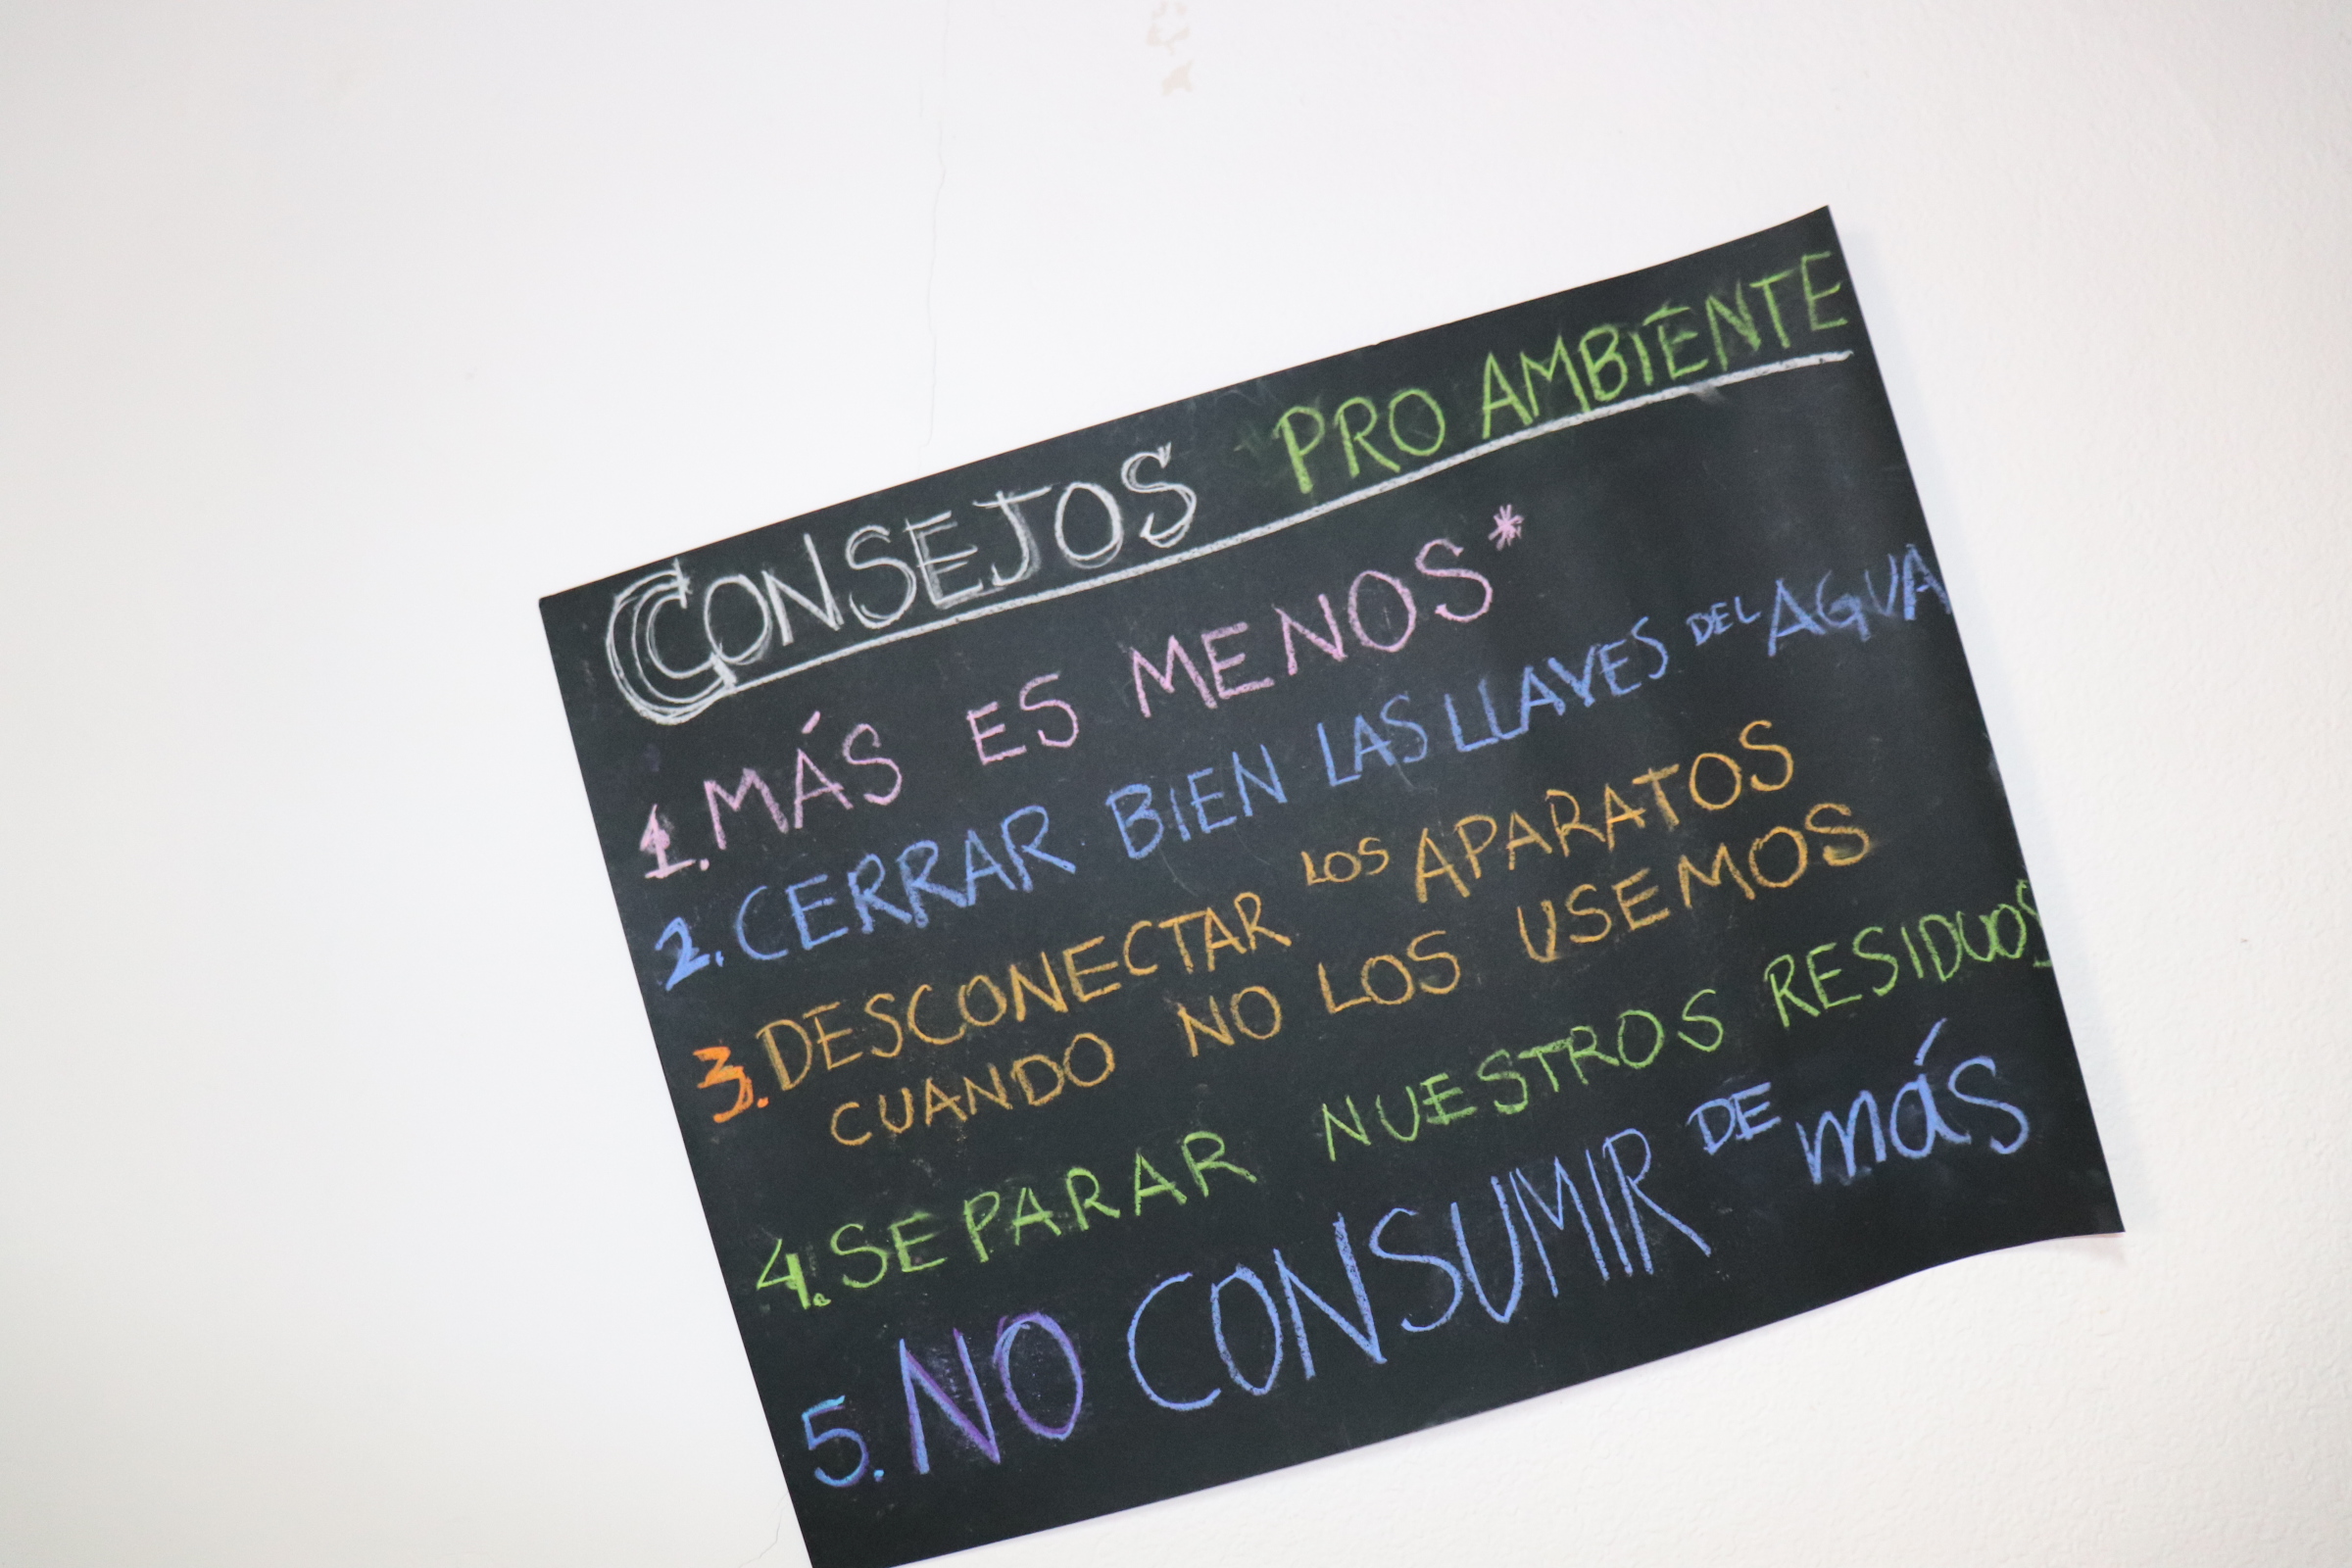 CONSEJOS PRO AMBIENTE
1. MÁS ES MENOS*
2. CERRAR BIEN LAS LLAVES DEL AGUA
3. DESCONECTAR LOS APARATOS
CUANDO NO LOS USEMOS
4. SEPARAR NUESTROS RESIDUOS
5. NO CONSUMIR DE más